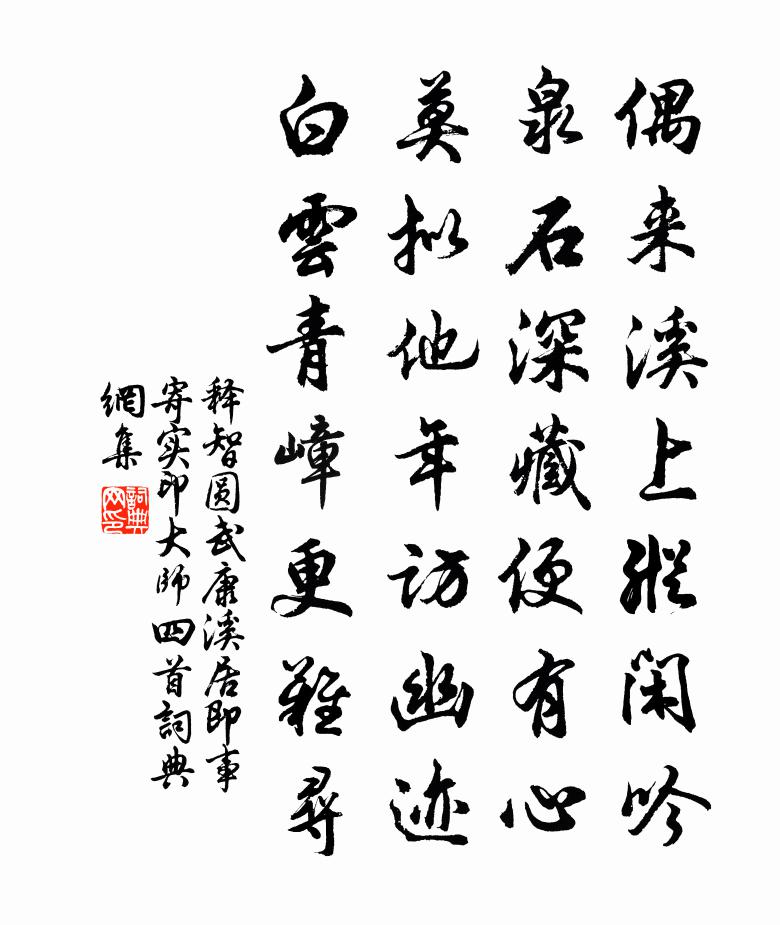 偶来溪上纵闲吟
泉石深藏便有心
莫拟他年访幽迹
白雲青嶂更難尋
释智圆武康溪居即事
寄实印大师四首詞典
網集
詞典网印